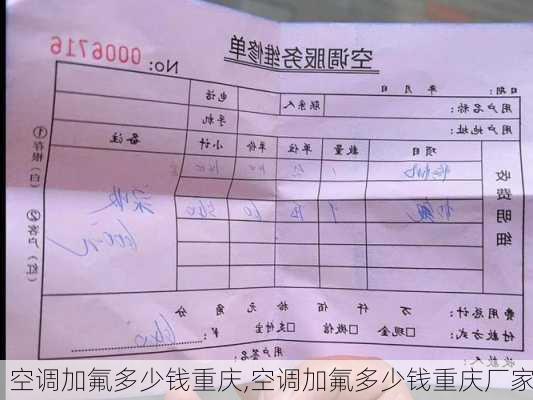 空调服务维修单
No: 0006716
日期: 年 月 日
用户名称: 联系人 电话
用户地址: 手机
收费明细 项目 数量 单位 单价 小计 备注
加氟 1
费用总计: 万 仟 佰 拾 元 角 分
付款方式: □现金 □微信 □支付宝 ¥
收款人: 用户签名:
①存根(白) ②客户(红)
空调加氟多少钱重庆,空调加氟多少钱重庆厂家